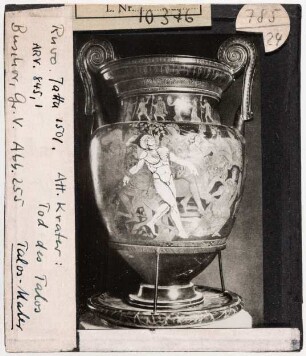 L. Nr.
10376
785
24
Ruvo. Jatta 1501. Att. Krater:
ARV. 845,1 Tod des Talos
Buschor, Gr. V. Abb. 255
Talos-Maler